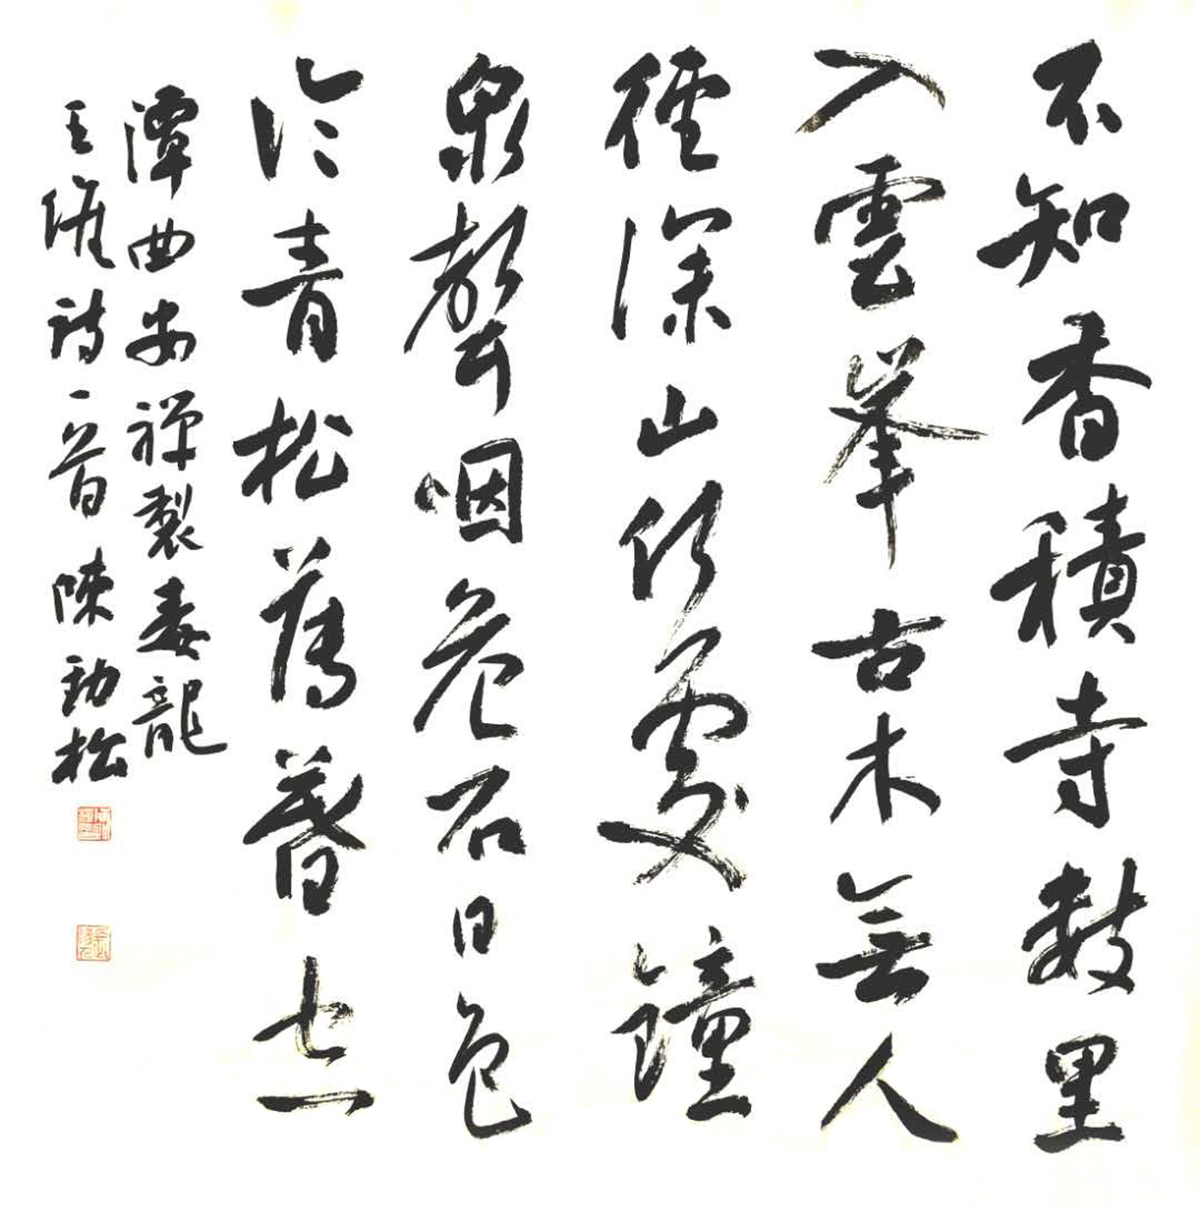 不知香積寺數里
入雲峯古木無人
徑深山何處鐘
泉聲咽危石日色
冷青松薄暮空
潭曲安禪製毒龍
王維詩一首 陳勁松